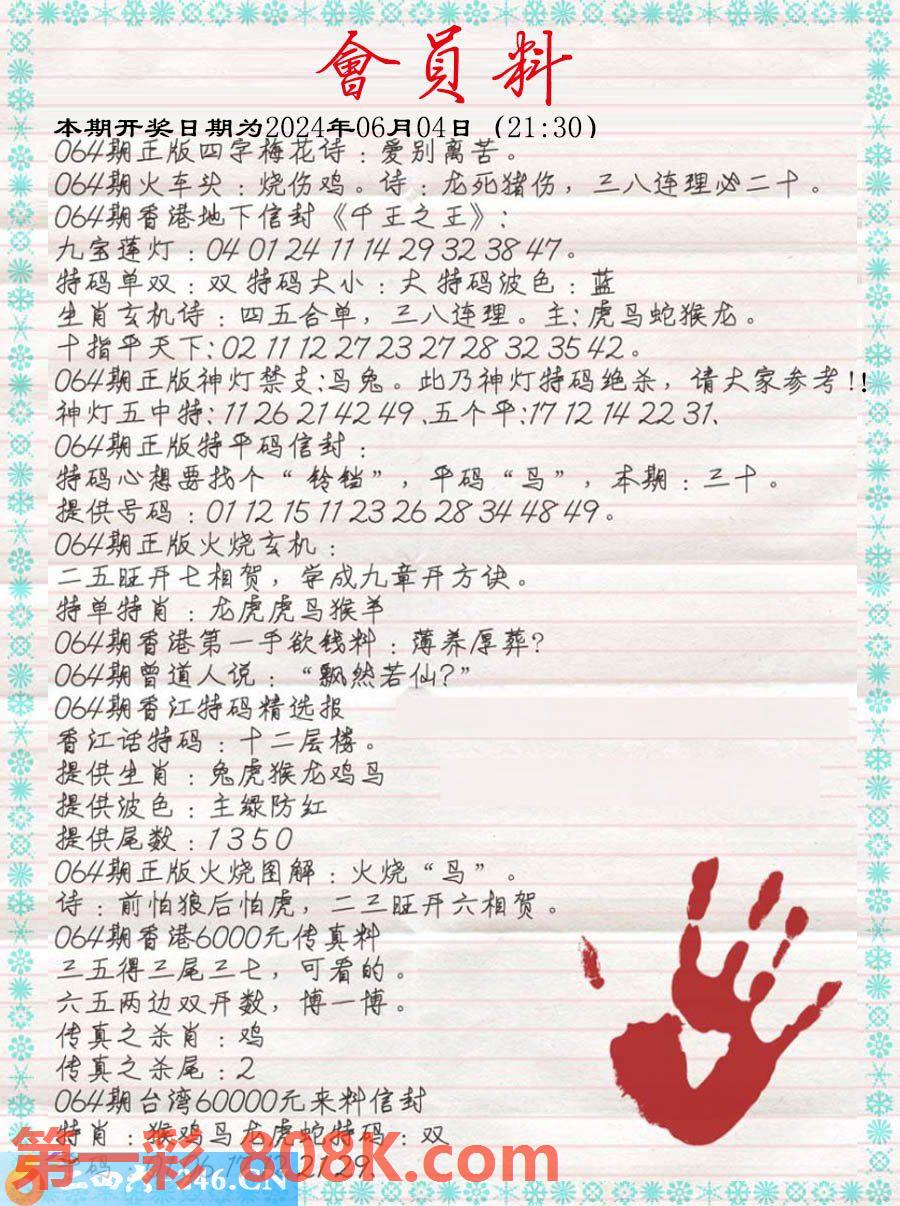 會員料
本期开奖日期为2024年06月04日（21:30）
064期正版四字梅花诗：爱别离苦。
064期火车头：烧伤鸡。诗：龙死猪伤，三八连理必二十。
064期香港地下信封《千王之王》：
九宝莲灯：04 01 24 11 14 29 32 38 47。
特码单双：双 特码大小：大 特码波色：蓝
生肖玄机诗：四五合单，三八连理。主：虎马蛇猴龙。
十指平天下：02 11 12 27 23 27 28 32 35 42。
064期正版神灯禁支：马兔。此乃神灯特码绝杀，请大家参考!!
神灯五中特：11 26 21 42 49 、五个平：17 12 14 22 31、
064期正版特平码信封：
特码心想要找个“铃铛”，平码“马”，本期：三十。
提供号码：01 12 15 11 23 26 28 34 48 49。
064期正版火烧玄机：
二五旺开七相贺，学成九章开方诀。
特单特肖：龙虎虎马猴羊
064期香港第一手欲钱料：薄养厚葬?
064期曾道人说：“飘然若仙?”
064期香江特码精选报
香江话特码：十二层楼。
提供生肖：兔虎猴龙鸡马
提供波色：主绿防红
提供尾数：1 3 5 0
064期正版火烧图解：火烧“马”。
诗：前怕狼后怕虎，二三旺开六相贺。
064期香港6000元传真料
三五得三尾三七，可看的。
六五两边双开数，博一博。
传真之杀肖：鸡
传真之杀尾：2
064期台湾60000元来料信封
特肖：猴鸡马龙虎蛇特码：双
第一彩 808K.com
246.CN